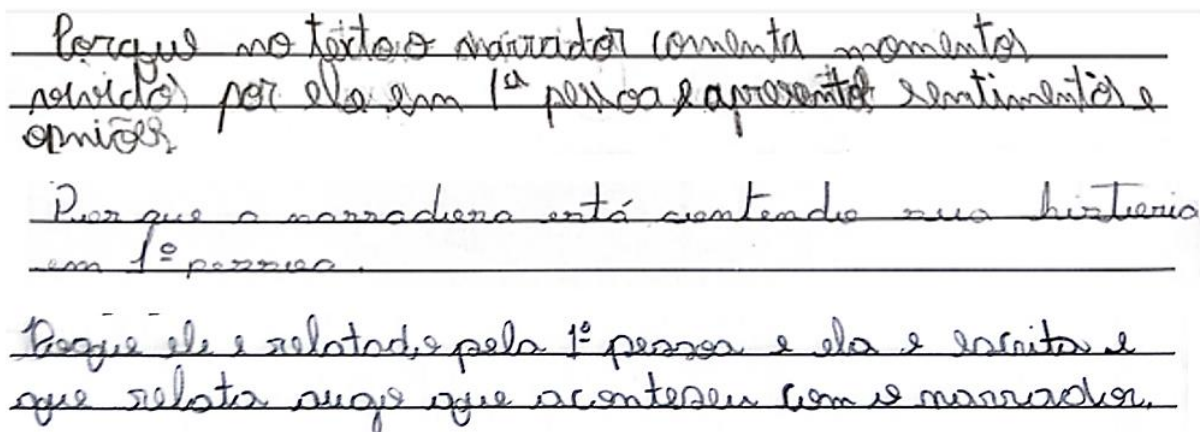 Porque no texto o narrador comenta momentos
vividos por ela em 1ª pessoa e apresenta sentimentos e
opniões
Por que a narradora está contando sua historia
em 1º pessoa.
Poque ele e relatado pela 1º pessoa e ela e escrita e
que relata augo que aconteseu com o narrador.